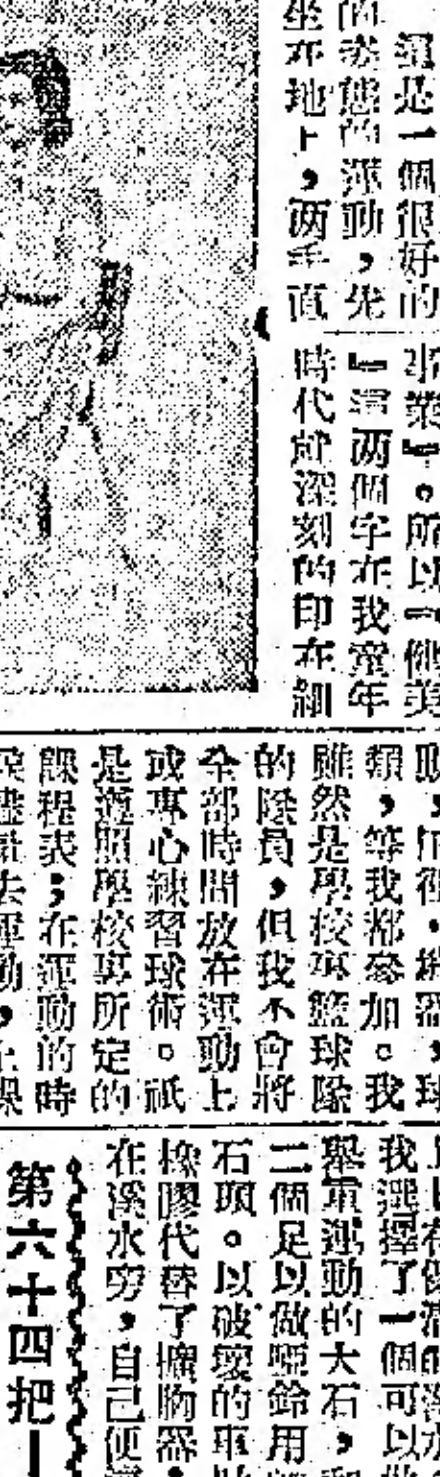 還是一個很好的
的姿態的運動，先
坐在地上，两手直
事業』。所以一健美
『這两個字在我童年
時代就深刻的印在細
類，等我都參加。我
雖然是學校專籃球隊
的隊員，但我不會將
全部時間放在運動上
或專心練習球術。祇
是遵照學校專所定的
課程表；在運動的時
我選擇了一個可以
舉重運動的大石，
二個足以做啞鈴用
石頭。以破壞的車
橡膠代替了擴胸器，
在溪水旁，自己便
第六十四把